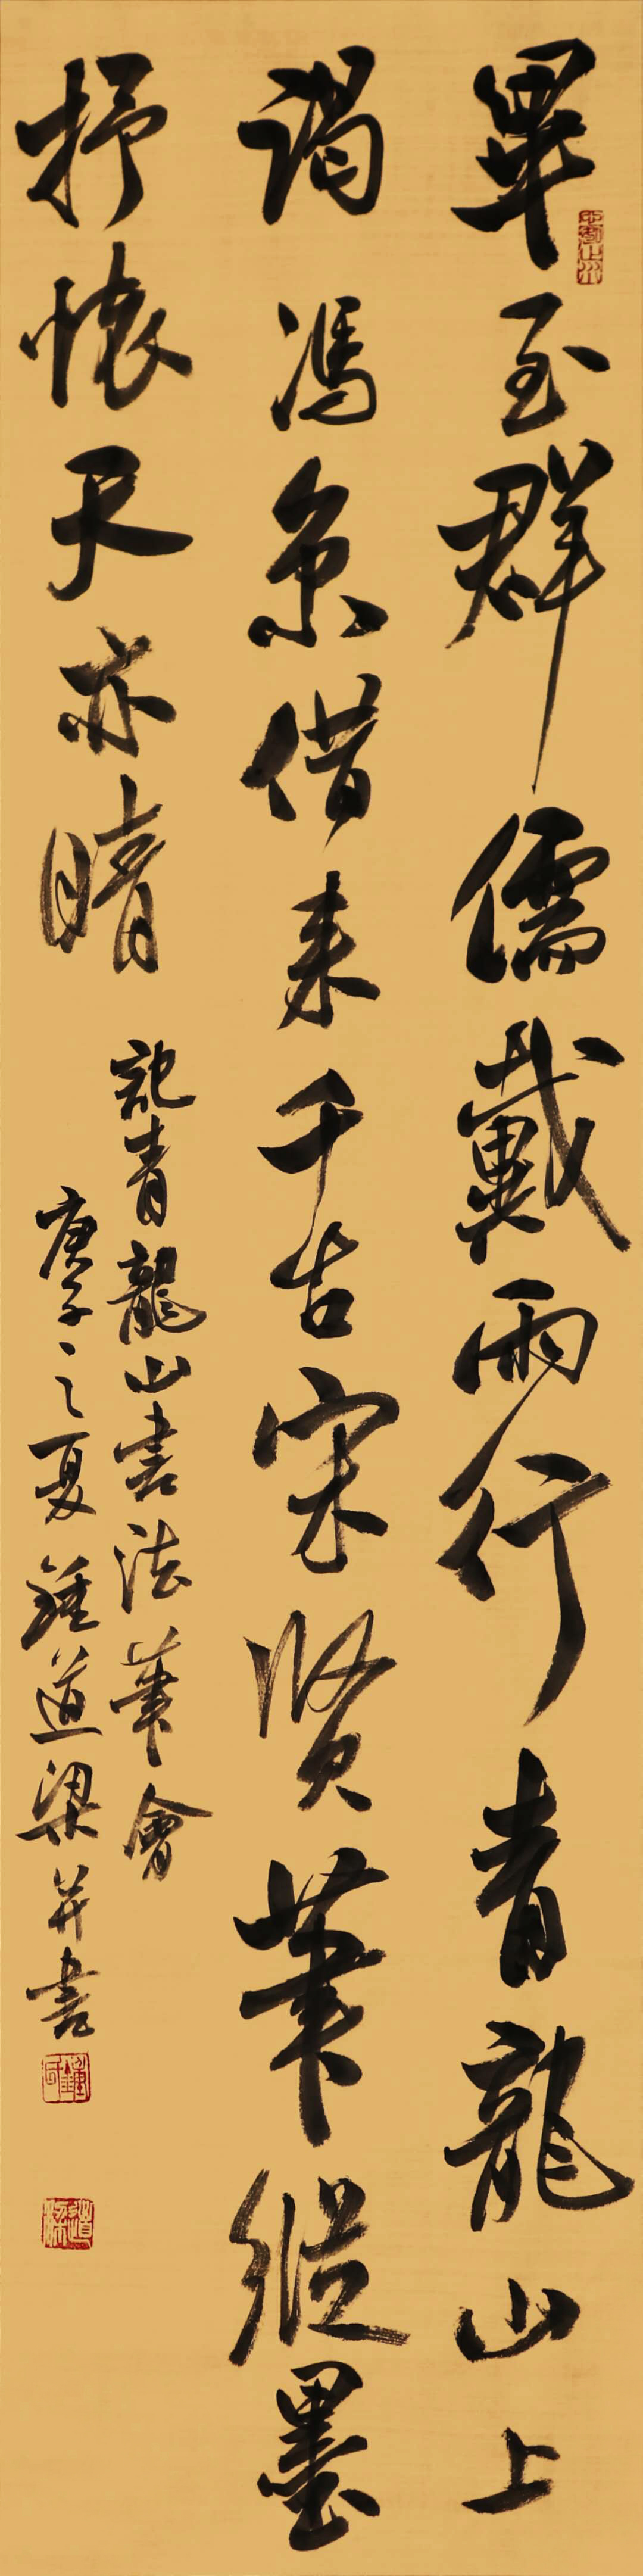 畢至群儒戴雨行青龍山上
謁馮京借来千古宋贤筆縱墨
抒懷天亦晴
記青龍山書法筆會
庚子之夏鍾道梁并書
道梁